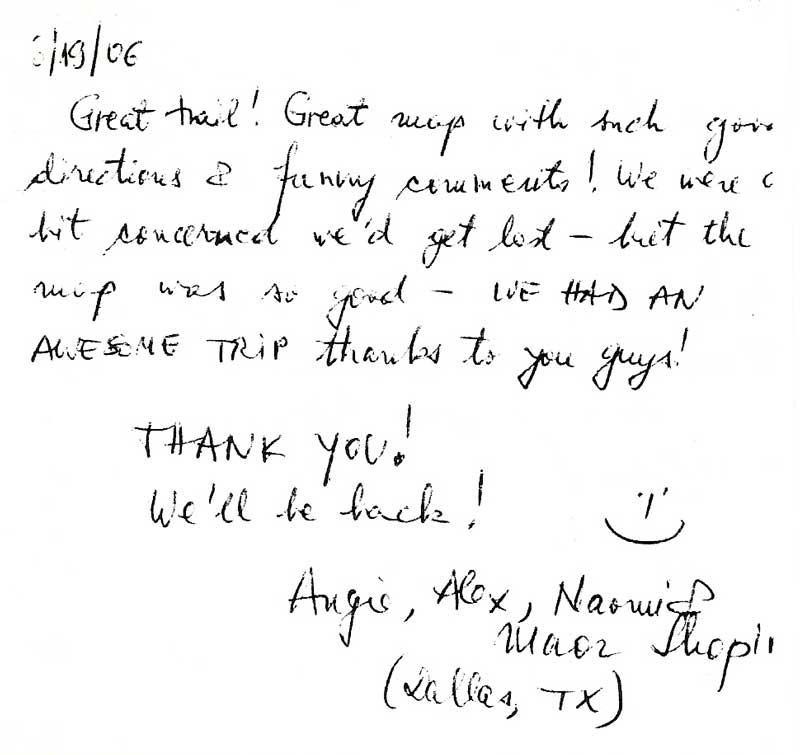 /19/06
Great trail! Great map with such goo
directions & funny comments! We were
bit concerned we'd get lost – but the
map was so good – WE HAD AN
AWESOME TRIP thanks to you guys!
THANK YOU!
We'll be back!
Angie, Alex, Naomi &
Maoz Shapi
(Dallas, TX)